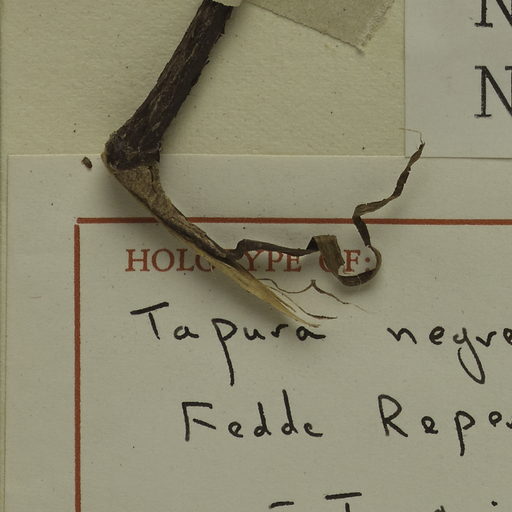 N
N
HOLOTYPE OF:
Tapura negre
Fedde Repe